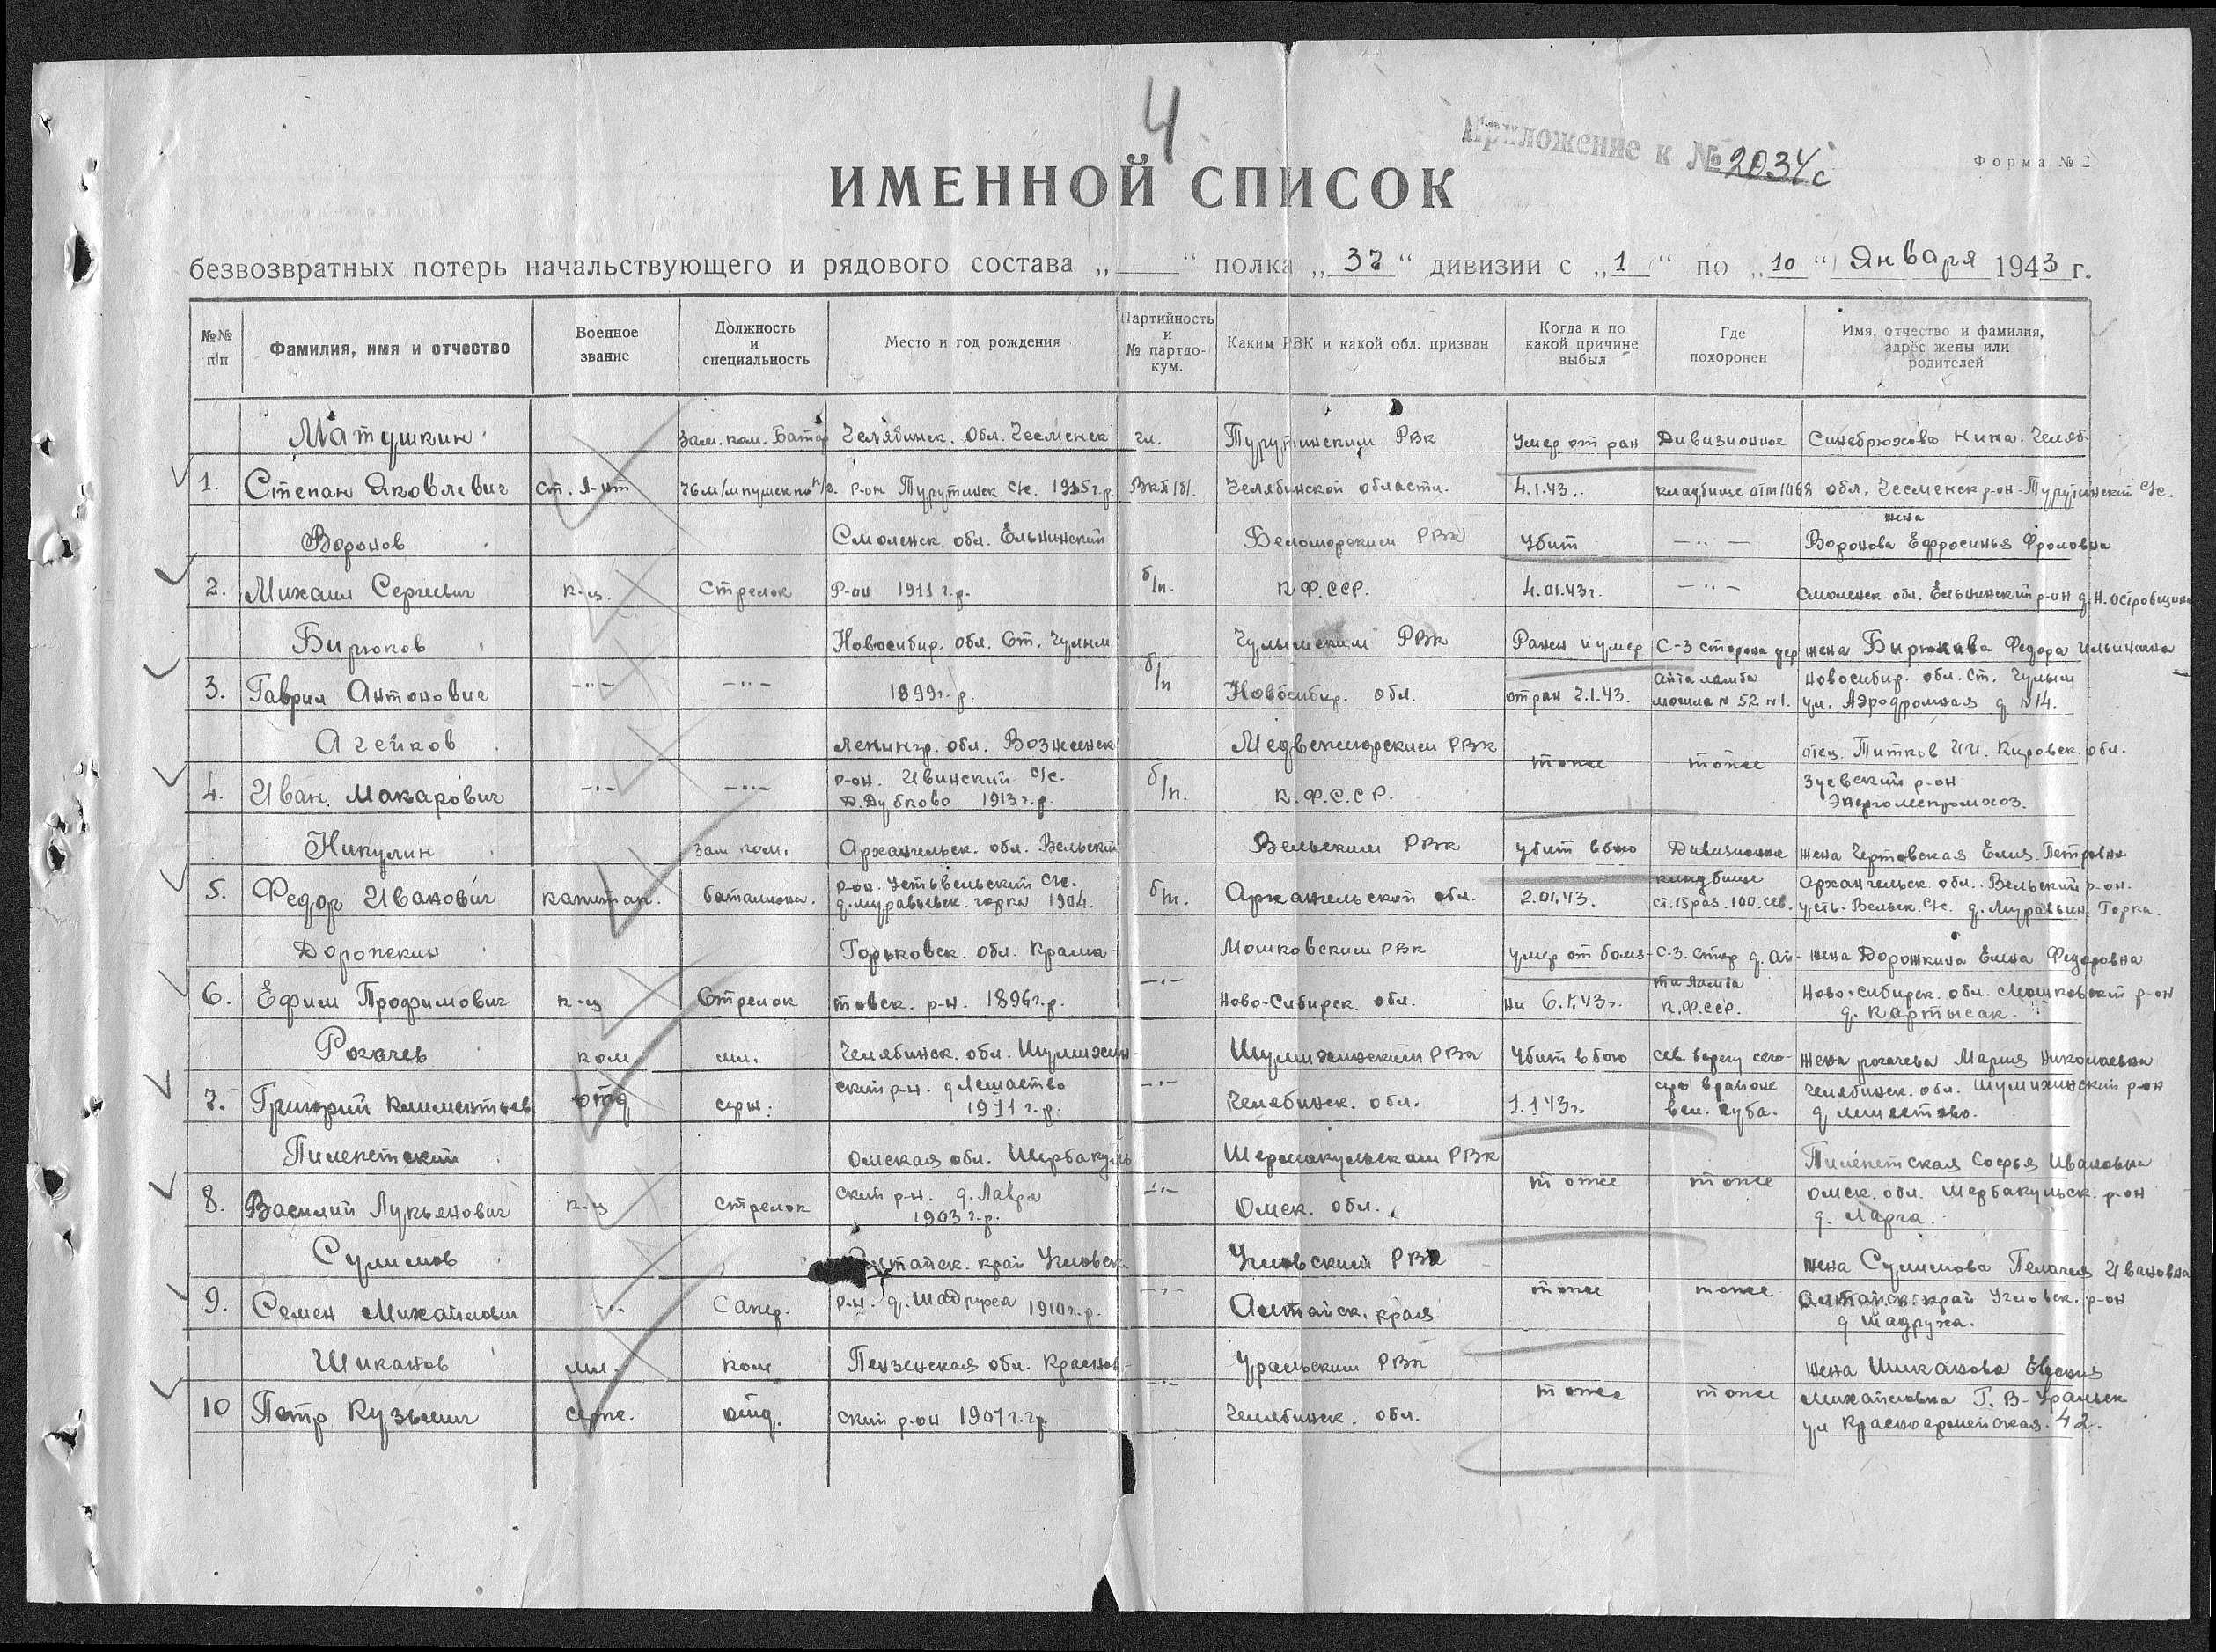 4
Приложение к № 2034с
Форма № 2
ИМЕННОЙ СПИСОК
безвозвратных потерь начальствующего и рядового состава „ “ полка „37“ дивизии с „1“ по „10“ Января 1943 г.
№№ п/п
Фамилия, имя и отчество
Военное звание
Должность и специальность
Место и год рождения
Партийность и № партдокум.
Каким РВК и какой обл. призван
Когда и по какой причине выбыл
Где похоронен
Имя, отчество и фамилия, адрес жены или родителей
Матушкин Зам. ком. Челябинск. обл. Чесменск чл. РВК Умер от ран Дивизионное Синебрюхова Нина. Челяб.
1. Степан Яковлевич ст. л-нт р-он с/с. г.р. Челябинской области. 4.1.43. кладбище обл. Чесменск р-он с/с.
Воронов Смоленск. обл. Ельнинский Беломорским РВК Убит —"— жена Воронова Ефросинья Фроловна
2. Михаил Сергеевич к-ц. Стрелок р-он 1911 г.р. б/п. К.Ф.ССР. 4.01.43г. —"— Смоленск. обл. Ельнинский р-он д. Н.
Бирюков Новосибир. обл. Ст. Чулым Чулымским РВК Ранен и умер С-З сторона дер жена Бирюкова Федора Ильинична
3. Гаврил Антонович —"— —"— 1899г.р. б/п Новосибир. обл. от ран 2.1.43. могила N 52 N 1. Новосибир. обл. ст. Чулым
ул. Аэродромная д N 14.
Агейков Ленингр. обл. Вознесенск Медвежьегорским РВК тоже тоже отец. Титков И.И. Кировск. обл.
4. Иван Макарович —"— —"— р-он. Ивинский с/с. б/п. К.Ф.С.С.Р. Зуевский р-он
Д. Дубково 1913 г.р.
Никулин зам ком. Архангельск. обл. Вельский Вельским РВК убит в бою Дивизионное жена Чертовская Елиз. Петровна
5. Федор Иванович капитан. батальона. р-он. Устьвельский с/с. б/п. Архангельской обл. 2.01.43. кладбище Архангельск. обл. Вельский р-он.
горка 1904. ст. 15 раз. 100. сев. усть-Вельск. с/с. д. Муравьин. Горка.
Горьковск. обл. Мошковским РВК умер от болез- С-З. стор д. Ай- жена Дорожкина Елена Федоровна
6. Ефим Трофимович к-ц Стрелок р-н. 1896г.р. —"— Ново-Сибирск. обл. ни 6.1.43г. К.Ф.ССР. Ново-Сибирск. обл. Мошковский р-он
д. Картысак.
Рогачев ком. мл. Челябинск. обл. Шумихин- Шумихинским РВК Убит в бою сев. берегу жена Рогачева Мария Николаевна
7. Григорий Клементьев отд серж. ский р-н. 1911 г.р. —"— Челябинск. обл. 1.1.43г. в районе вел. губа. Челябинск. обл. Шумихинский р-он
Пилепетский Омская обл. Шербакуль РВК тоже тоже Пилепетская Софья Ивановна
8. Василий Лукьянович к-ц стрелок ский р-н. —"— Омск. обл. Омск. обл. Шербакульск. р-он
1903 г.р.
Сулимов край Угловск Угловский РВК тоже тоже жена Сулимова Пелагея Ивановна
9. Семен Михайлович —"— Сапер. р-н. д. Шадруха 1910 г.р. —"— Алтайск. края Алтайск. край Угловск. р-он
д Шадруха.
Шиканов мл. ком Пензенская обл. Уральским РВК тоже тоже жена Шиканова
10 Петр Кузьмич серж. отд. ский р-он 1907 г.р. —"— Челябинск. обл. Михайловна Г. В-Уральск
ул Красноармейская. 42.